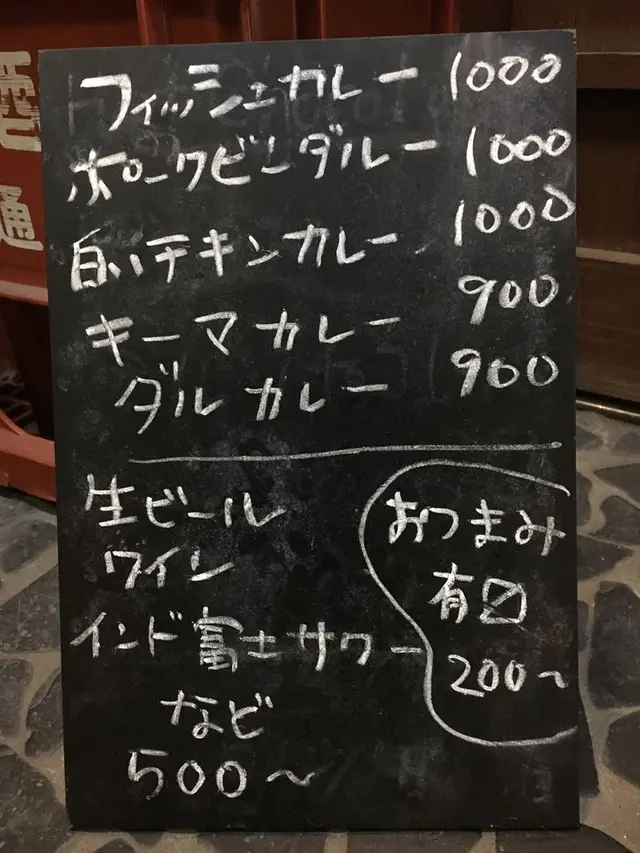 フィッシュカレー 1000
ポークビンダルー 1000
白いチキンカレー 1000
キーマカレー 900
ダルカレー 900
生ビール
ワイン
インド富士サワー
など
500〜
おつまみ
有〼
200〜
酒
通